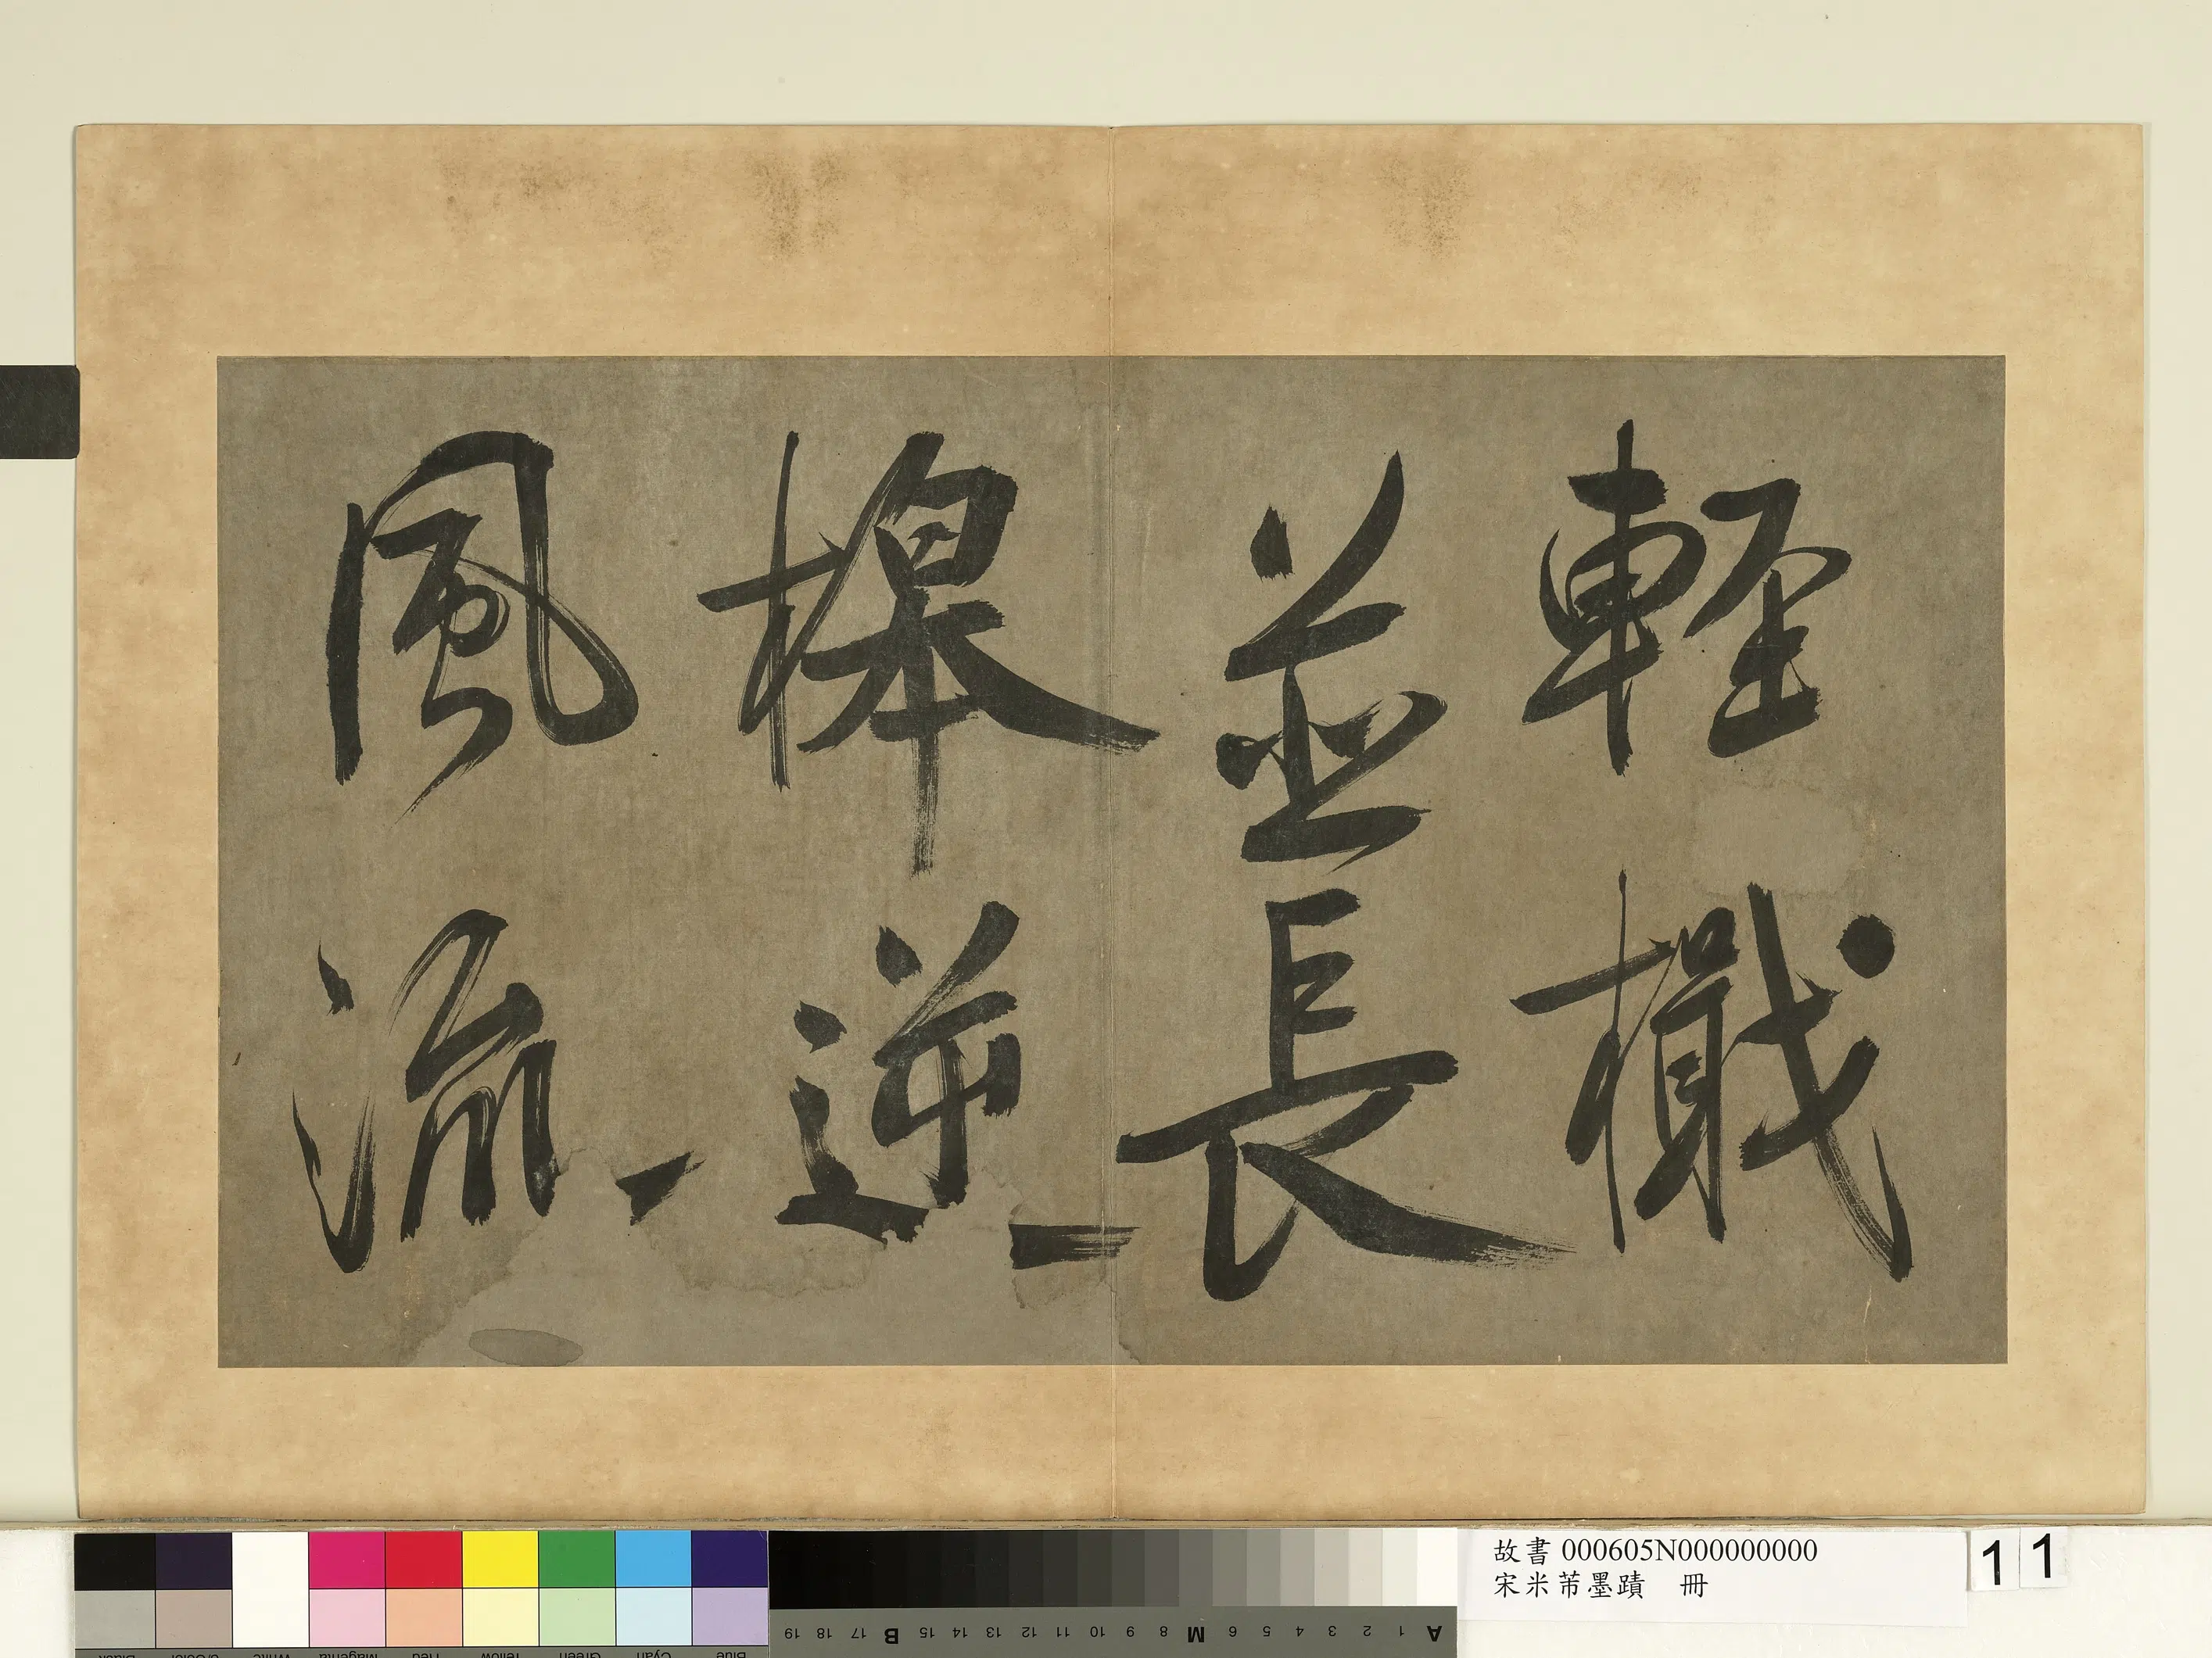 輕檝
並長
槔逆
風流
故書 000605N000000000
宋米芾墨蹟 冊
11
Blue Cyan Green Yellow Red Magenta White 3/Color Black
A 1 2 3 4 5 6 M 8 9 10 11 12 13 14 15 B 17 18 19